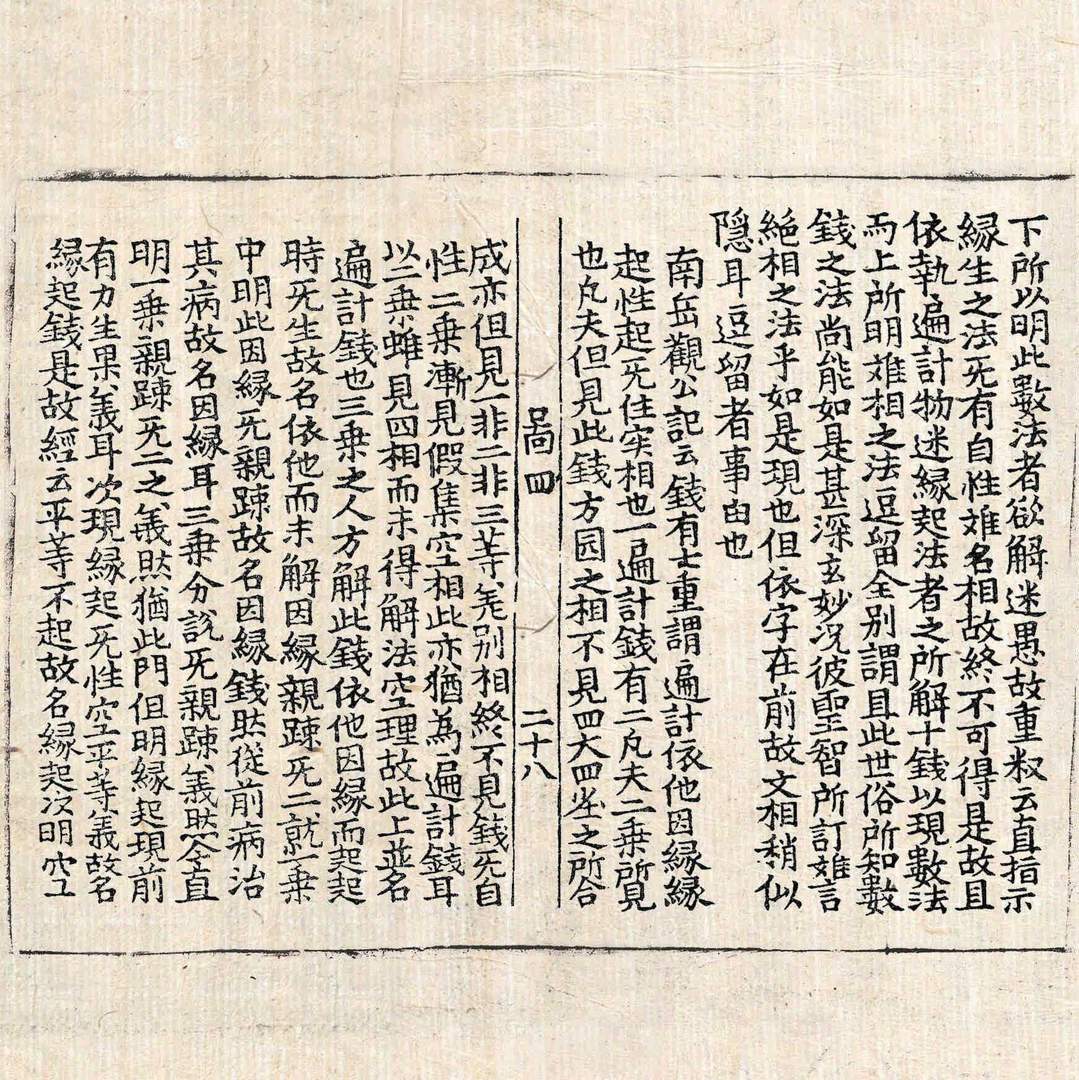 下所以明此數法者欲解迷愚故重釈云直指示
緣生之法旡有自性雖名相故終不可得是故且
依執遍計物迷緣起法者之所解十錢以現數法
而上所明难相之法逗留全别謂且此世俗所知數
錢之法尚能如是甚深玄妙况彼聖智所訂难言
絕相之法乎如是現也但依字在前故文相稍似
隐耳逗留者事由也
南岳觀公記云錢有七重謂遍計依他因緣緣
起性起旡住实相也一遍計錢有二凡夫二乗所見
也凡夫但見此錢方园之相不見四大四尘之所合
啚四
二十八
成亦但見一非二非三等差别相終不見錢旡自
性二乗漸見假集空相此亦猶為遍計錢耳
以二乗雖見四相而未得解法空理故此上並名
遍計錢也三乗之人方解此錢依他因緣而起起
時旡生故名依他而未解因緣親踈旡二就一乗
中明此因緣旡親踈故名因緣錢然從前病治
其病故名因緣耳三乗分說旡親踈義然今直
明一乗親踈旡二之義然猶此門但明緣起現前
有力生果義耳次現緣起旡性空平等義故名
緣起錢是故經云平等不起故名緣起次明空